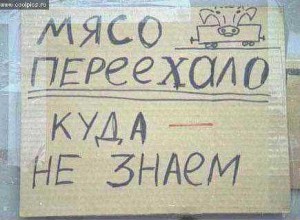 www.coolpics.ru
МЯСО
ПЕРЕЕХАЛО
КУДА —
НЕ ЗНАЕМ